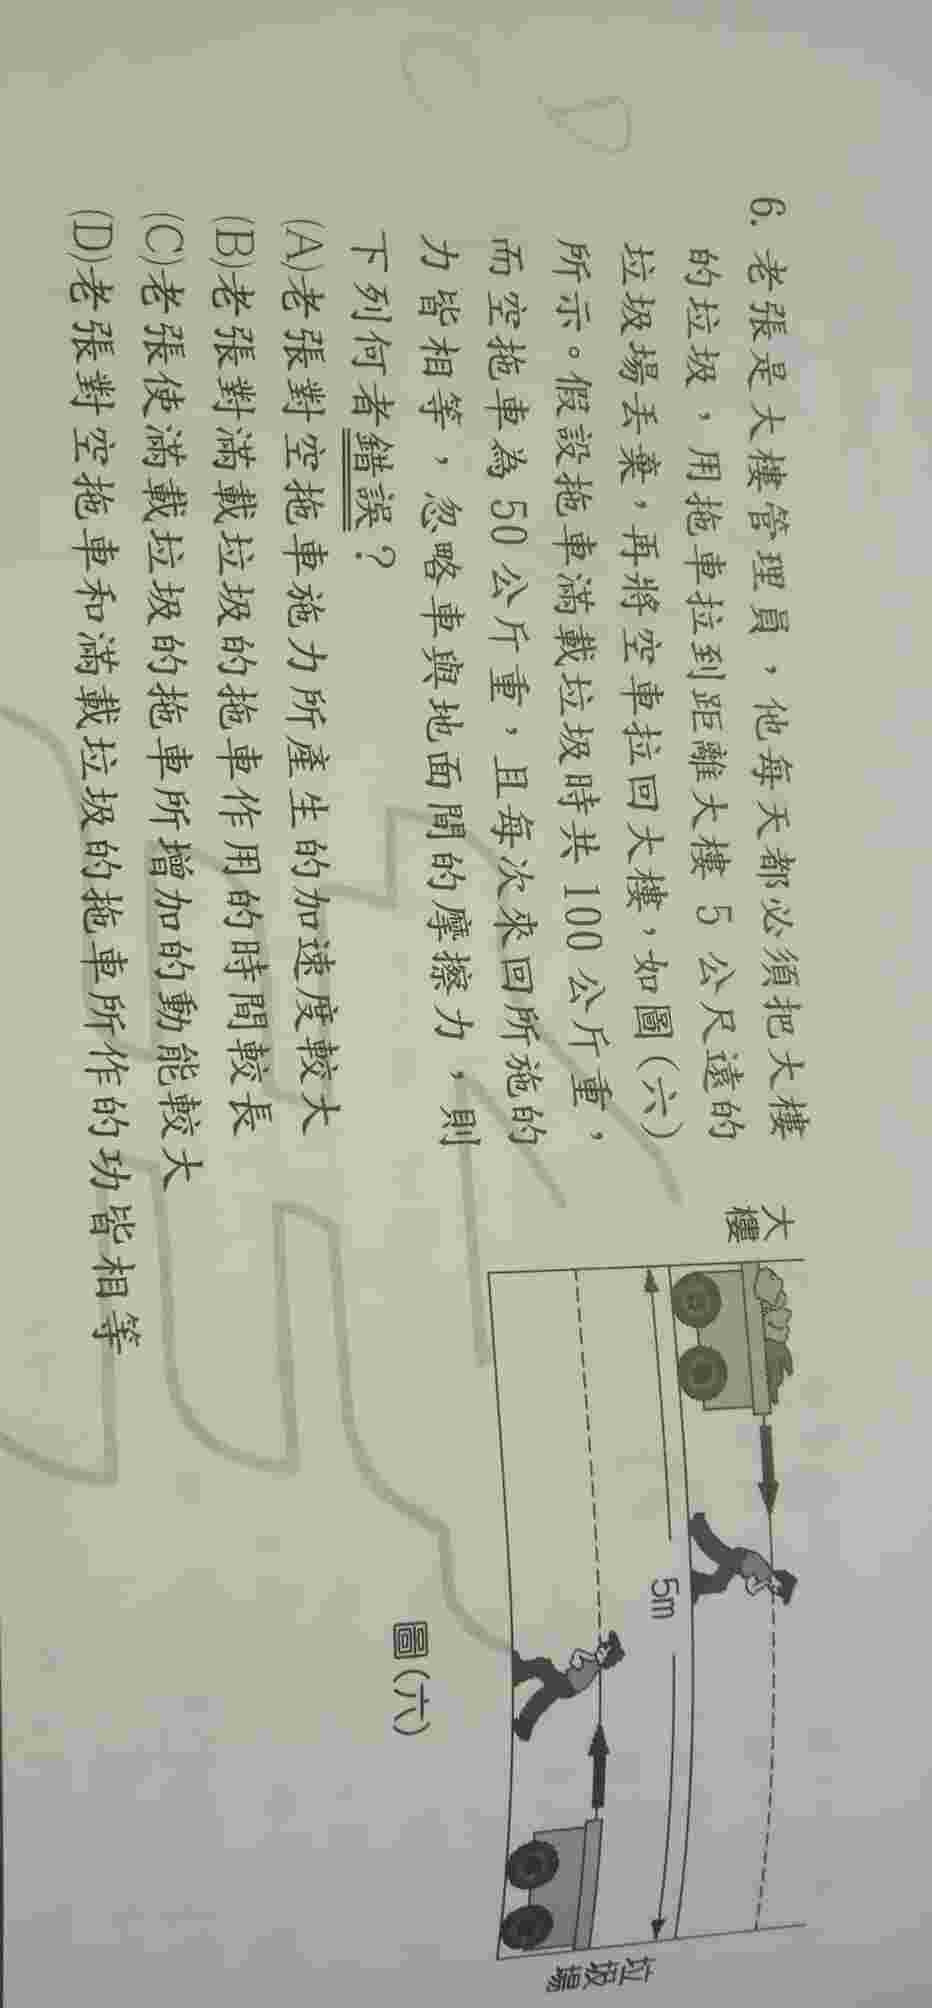 6. 老張是大樓管理員，他每天都必須把大樓
的垃圾，用拖車拉到距離大樓 5 公尺遠的
垃圾場丟棄，再將空車拉回大樓，如圖(六)
所示。假設拖車滿載垃圾時共 100 公斤重，
而空拖車為 50 公斤重，且每次來回所施的
力皆相等，忽略車與地面間的摩擦力，則
下列何者錯誤？
(A)老張對空拖車施力所產生的加速度較大
(B)老張對滿載垃圾的拖車作用的時間較長
(C)老張使滿載垃圾的拖車所增加的動能較大
(D)老張對空拖車和滿載垃圾的拖車所作的功皆相等
大樓
5m
垃圾場
圖(六)